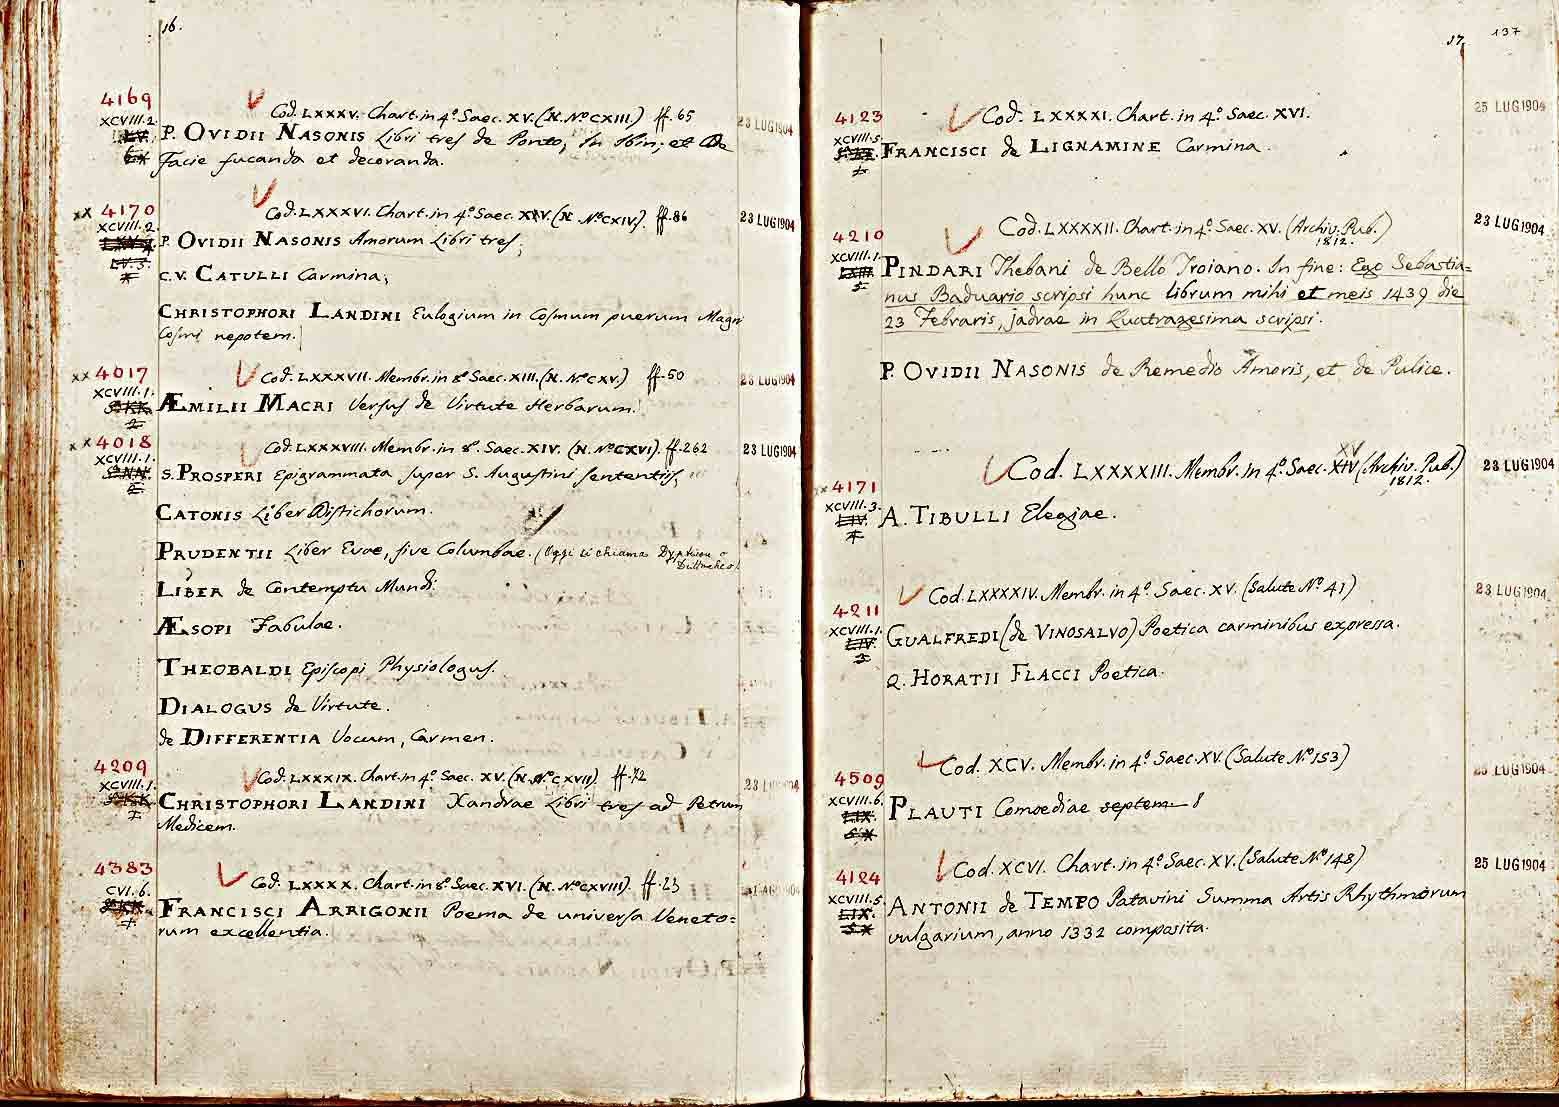 16.
4169
XCVIII.2.
Cod. LXXXV. Chart. in 4º. Saec. XV. (N. Nº CXIII.) ff. 65
23 LUG 1904
P. OVIDII NASONIS Libri tres de Ponto, In Ibin, et De
Facie fucanda et decoranda.
xx 4170
XCVIII.2.
Cod. LXXXVI. Chart. in 4º. Saec. XIV. (N. Nº CXIV). ff. 86
23 LUG 1904
P. OVIDII NASONIS Amorum Libri tres;
C.V. CATULLI Carmina;
CHRISTOPHORI LANDINI Eulogium in Cosmum puerum Magni
Cosmi nepotem.
xx 4017
XCVIII.1.
Cod. LXXXVII. Membr. in 8º. Saec. XIII. (N. Nº CXV.) ff. 50
23 LUG 1904
ÆMILII MACRI Versus de Virtute Herbarum.
xx 4018
XCVIII.1.
Cod. LXXXVIII. Membr. in 8º. Saec. XIV. (N. Nº CXVI). ff. 262
23 LUG 1904
S. PROSPERI Epigrammata super S. Augustini sententiis,
CATONIS Liber Distichorum.
PRUDENTII Liber Evae, sive Columbae. (Oggi si chiama Dypticon o
Dittocheo)
LIBER de Contemptu Mundi.
ÆSOPI Fabulae.
THEOBALDI Episcopi Physiologus.
DIALOGUS de Virtute.
de DIFFERENTIA Vocum, Carmen.
4209
XCVIII.1.
Cod. LXXXIX. Chart. in 4º. Saec. XV. (N. Nº CXVII). ff. 72
23 LUG 1904
CHRISTOPHORI LANDINI Xandrae Libri tres ad Petrum
Medicem.
4383
CVI.6.
Cod. LXXXX. Chart. in 8º. Saec. XVI. (N. Nº CXVIII). ff. 23
FRANCISCI ARRIGONII Poema de universa Veneto=
rum excellentia.
17. 137
4123
XCVIII.5.
Cod. LXXXXI. Chart. in 4º. Saec. XVI.
25 LUG 1904
FRANCISCI de LIGNAMINE Carmina.
4210
XCVIII.1.
Cod. LXXXXII. Chart. in 4º. Saec. XV. (Archiv. Pub.)
1812.
23 LUG 1904
PINDARI Thebani de Bello Troiano. In fine: Ego Sebastia=
nus Baduario scripsi hunc librum mihi et meis 1439 die
23 Febraris, jadrae in Quatragesima scripsi.
P. OVIDII NASONIS de Remedio Amoris, et de Pulice.
4171
XCVIII.3.
XV
Cod. LXXXXIII. Membr. in 4º. Saec. XIV (Archiv. Pub.)
1812.
23 LUG 1904
A. TIBULLI Elegiae.
4211
XCVIII.1.
Cod. LXXXXIV. Membr. in 4º. Saec. XV. (Salute Nº. 41)
23 LUG 1904
GUALFREDI (de VINOSALVO) Poetica carminibus expressa.
Q. HORATII FLACCI Poetica.
4509
XCVIII.6.
Cod. XCV. Membr. in 4º. Saec. XV. (Salute Nº 153)
25 LUG 1904
PLAUTI Comoediae septem 8
4124
XCVIII.5.
Cod. XCVI. Chart. in 4º. Saec. XV. (Salute Nº 148)
25 LUG 1904
ANTONII de TEMPO Patavini Summa Artis Rhythmorum
vulgarium, anno 1332 composita.